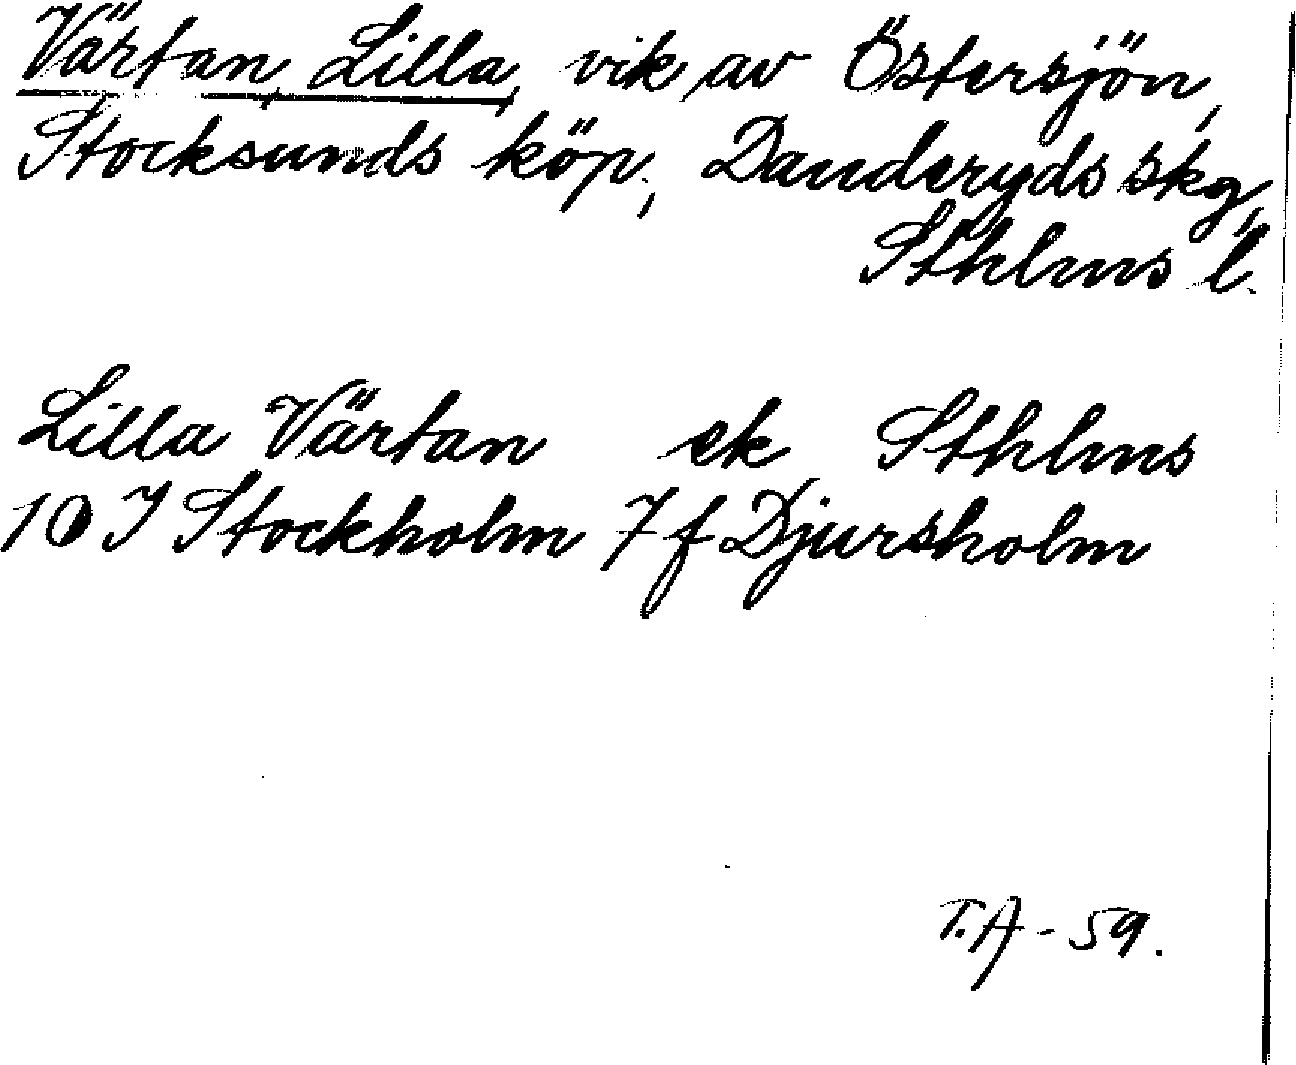 Värtan, Lilla, vik av Östersjön,
Stocksunds köp., Danderyds skg,
Sthlms l.
Lilla Värtan ek Sthlms
10 I Stockholm 7 f Djursholm
T.A - 59.